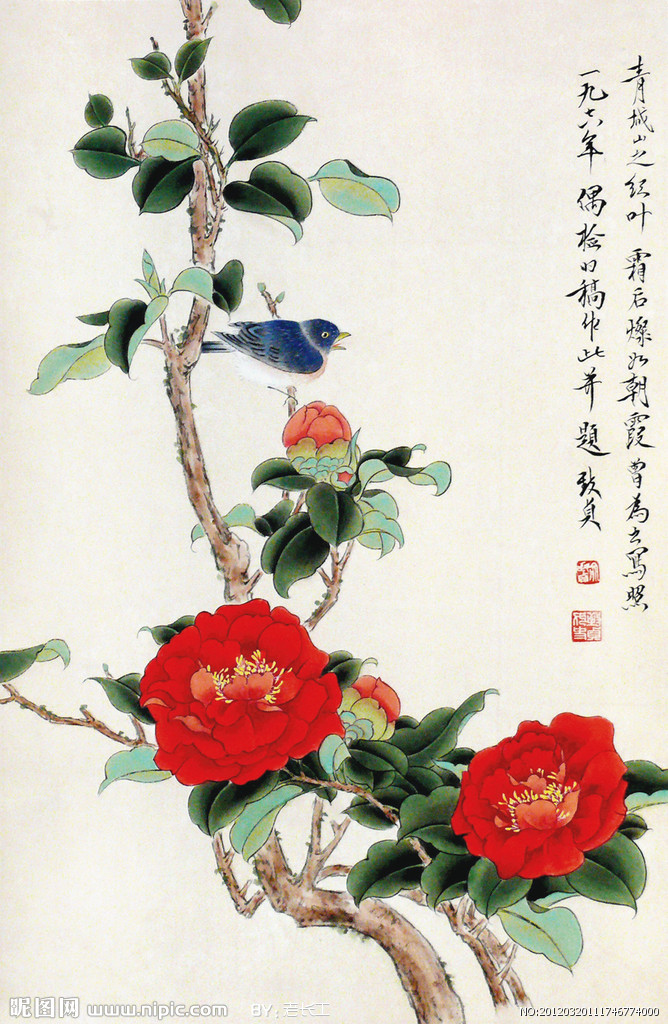 青城山之红叶 霜后燦如朝霞 曾為之寫照
一九六年 偶捡旧稿作此并題 致貞
昵图网 www.nipic.com BY:老长工
NO:20120320111746774000